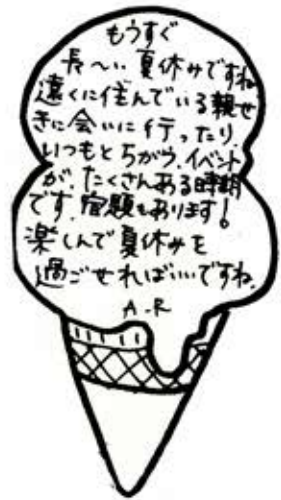 もうすぐ
長〜い夏休みですね
遠くに住んでいる親せ
きに会いに行ったり、
いつもとちがう、イベント
が、たくさんある時期
です。宿題もあります!
楽しんで夏休みを
過ごせればいいですね。
A.R